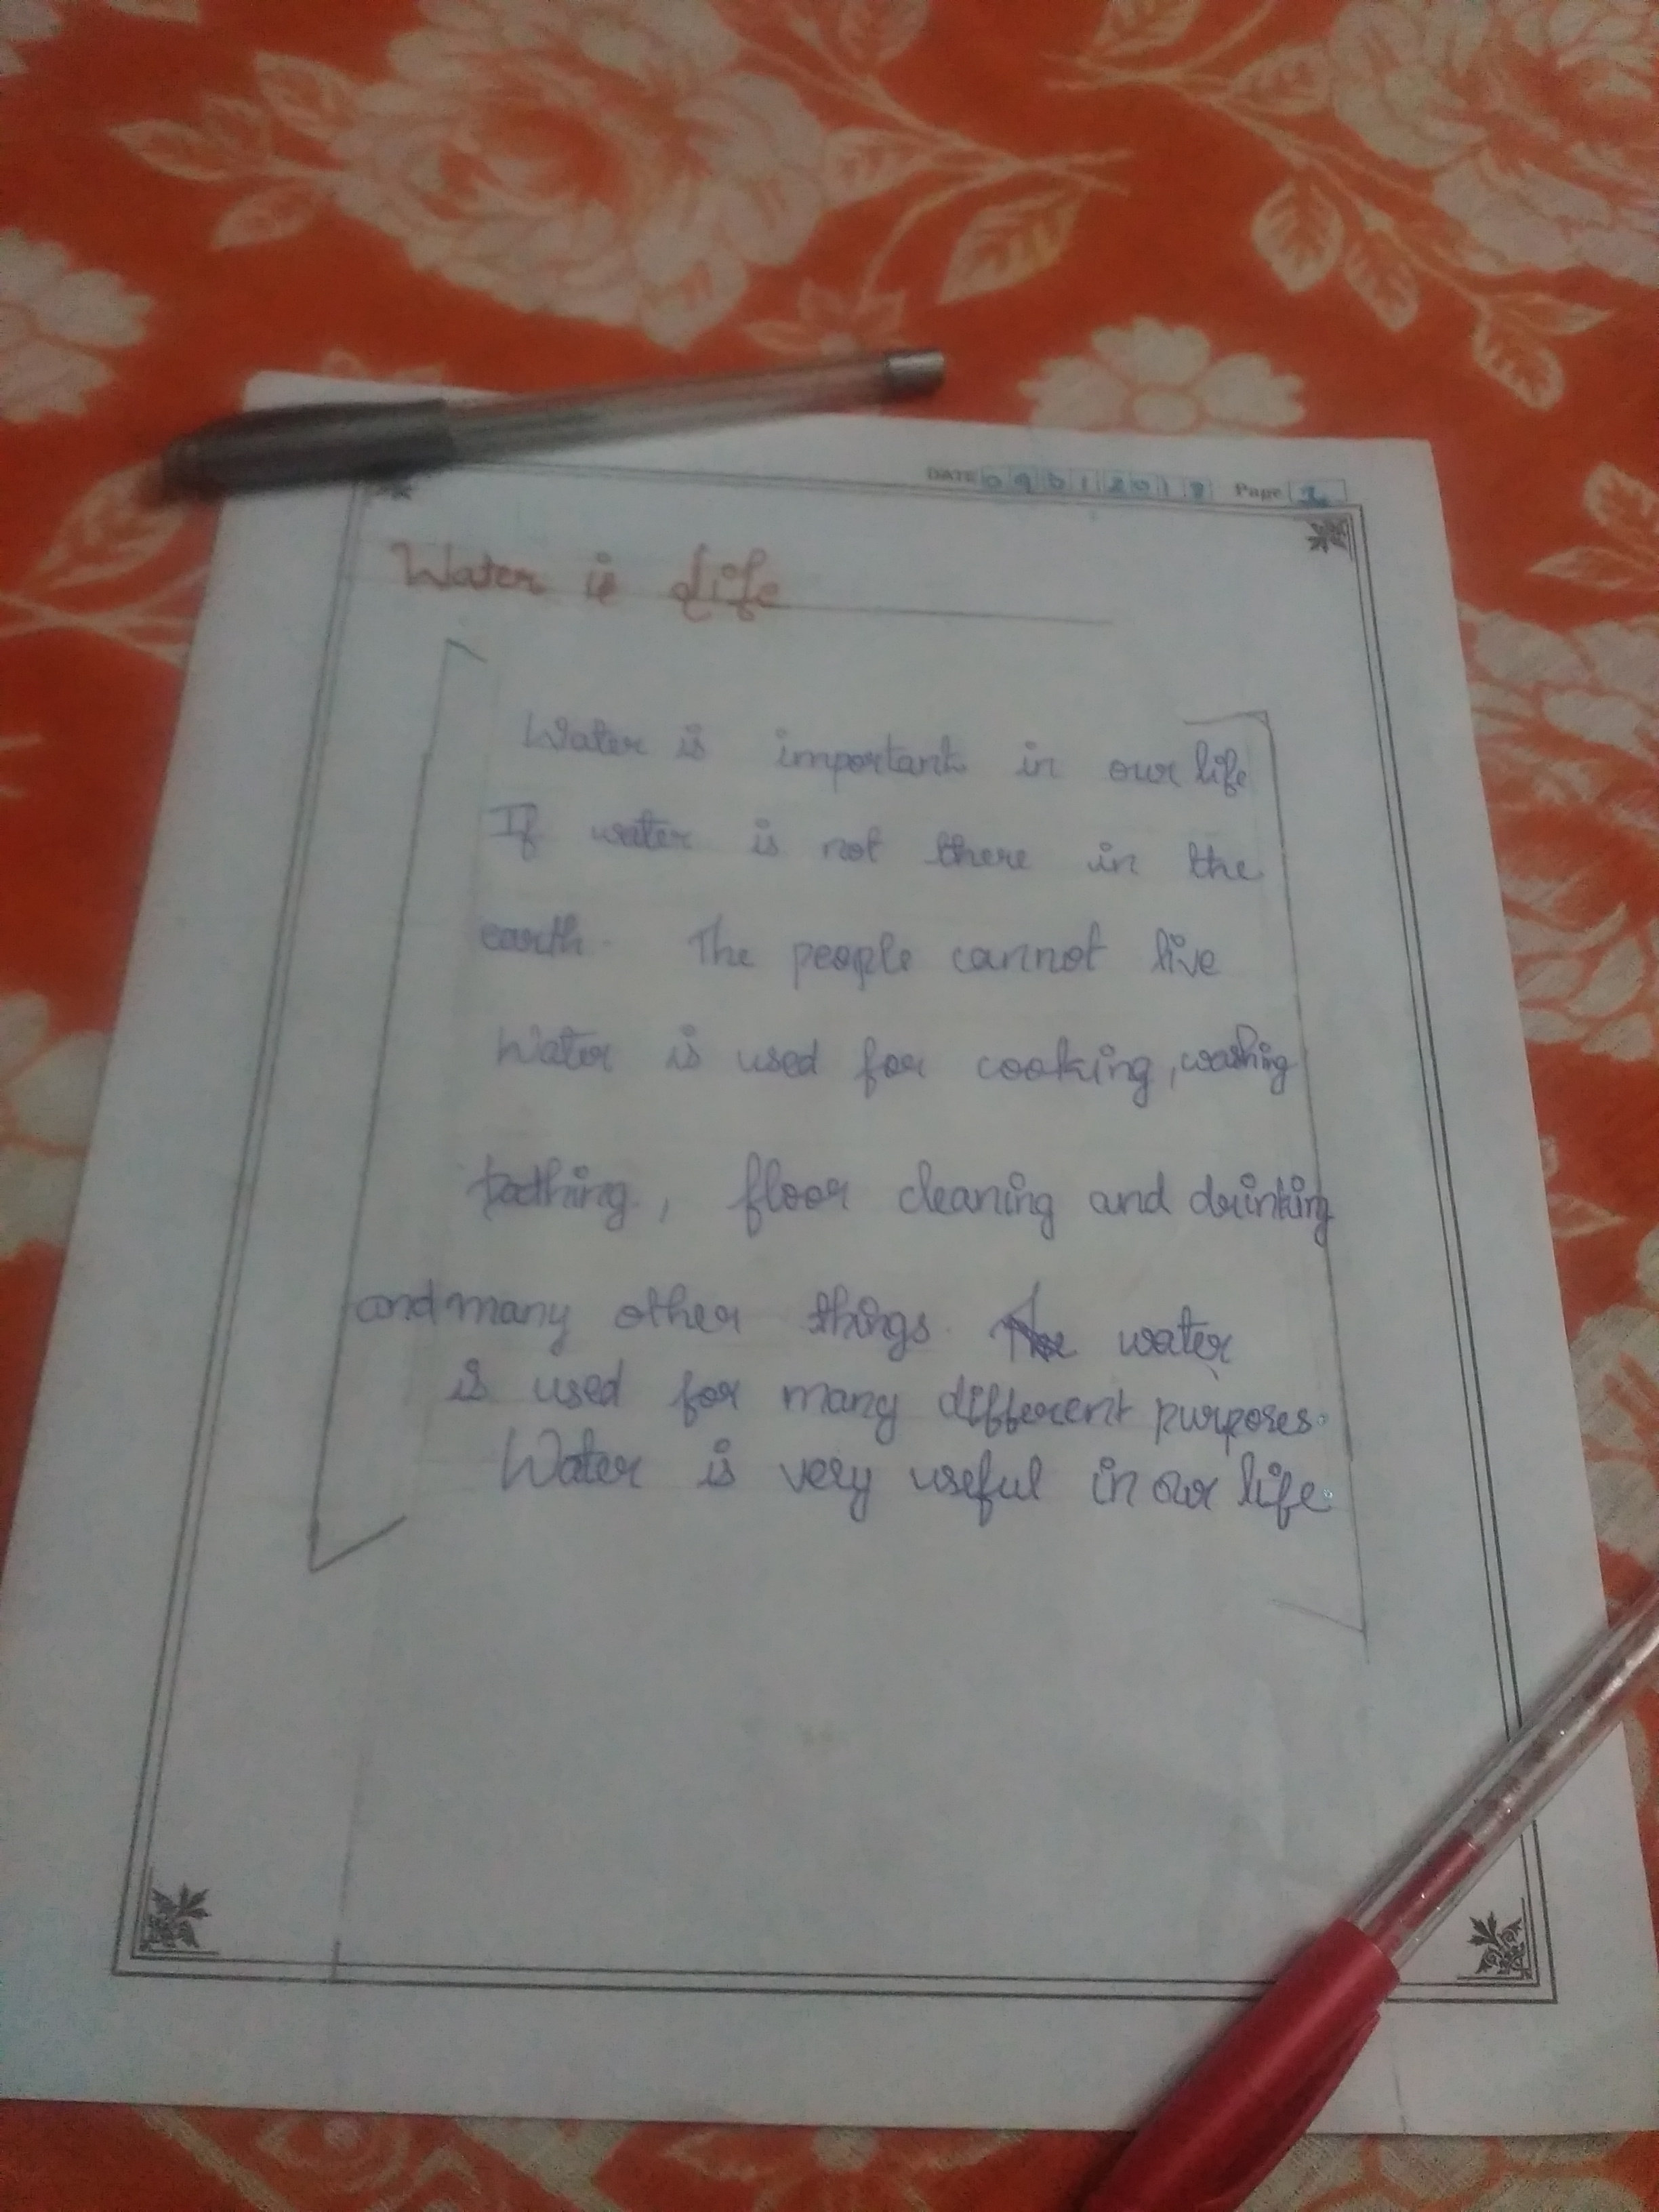 DATE Page 1
Water is life
Water is important in our life
If water is not there in the
earth. The people cannot live
Water is used for cooking, washing
, floor cleaning and drinking
and many other things. water
is used for many different purposes.
Water is very useful in our life.